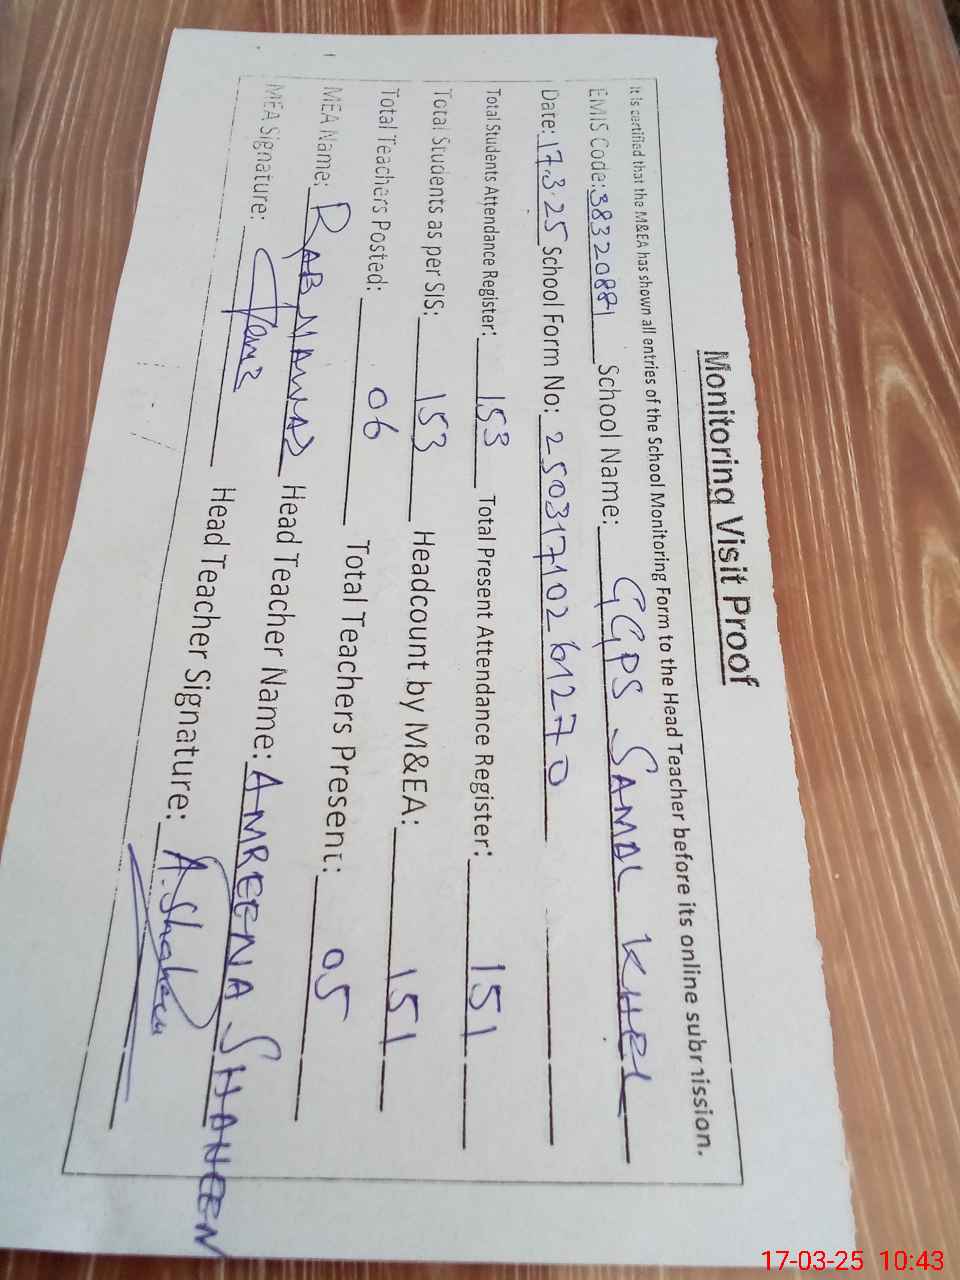 Monitoring Visit Proof
It is certified that the M&EA has shown all entries of the School Monitoring Form to the Head Teacher before its online submission.
EMIS Code: 38320881 School Name: GGPS SAMAL KHEL
Date: 17.3.25 School Form No: 2503171026 61270
Total Students Attendance Register: 153 Total Present Attendance Register: 151
Total Students as per SIS: 153 Headcount by M&EA: 151
Total Teachers Posted: 06 Total Teachers Present: 05
MEA Name: RAB NAWAZ Head Teacher Name: AMREENA SHAHEEN
MEA Signature: Head Teacher Signature: A.Shaheen
17-03-25 10:43